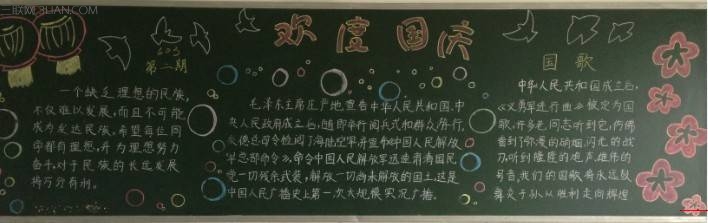 三联网 3LIAN.COM
欢度国庆
第二期
一个缺乏理想的民族,
不仅难以发展,而且不可能
成为发达民族。希望每位同
学都有理想,并为理想努力
奋斗,对于民族的长远发展
将万分有利。
毛泽东主席庄严地宣告中华人民共和国、中
央人民政府成立后,随即举行阅兵式和群众游行。
朱德总司令检阅了海陆空军并宣布《中国人民解放
军总部命令》,命令中国人民解放军迅速肃清国民
党一切残余武装,解放一切尚未解放的国土。这是
中国人民广播史上第一次大规模实况广播。
国歌
中华人民共和国成立后,
《义勇军进行曲》被定为国
歌,许多老同志听到它,仿佛
看到了弥漫的硝烟,闪光的战
刀,听到隆隆的炮声,雄伟的
号音。我们的国歌将永远鼓
舞炎子孙从胜利走向辉煌